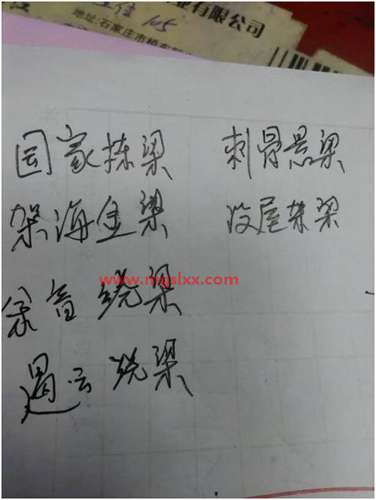 有限公司
地址:石家庄市桥东
国家栋梁 刺骨悬梁
架海金梁 没屋架梁
www.mgslxx.com
余音绕梁
遏云绕梁